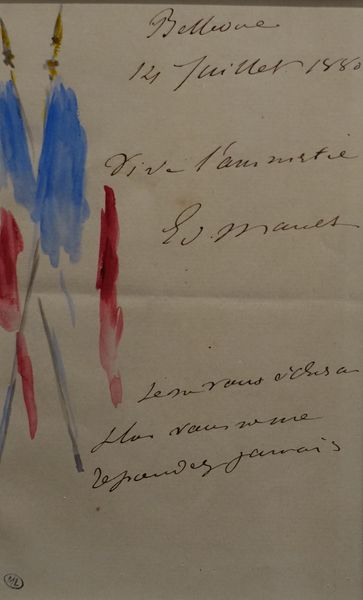 Bellevue
14 Juillet 1880
Vive l'amnistie
Ed. Manet
Je vous
plus vous ne me
répondez jamais
ML